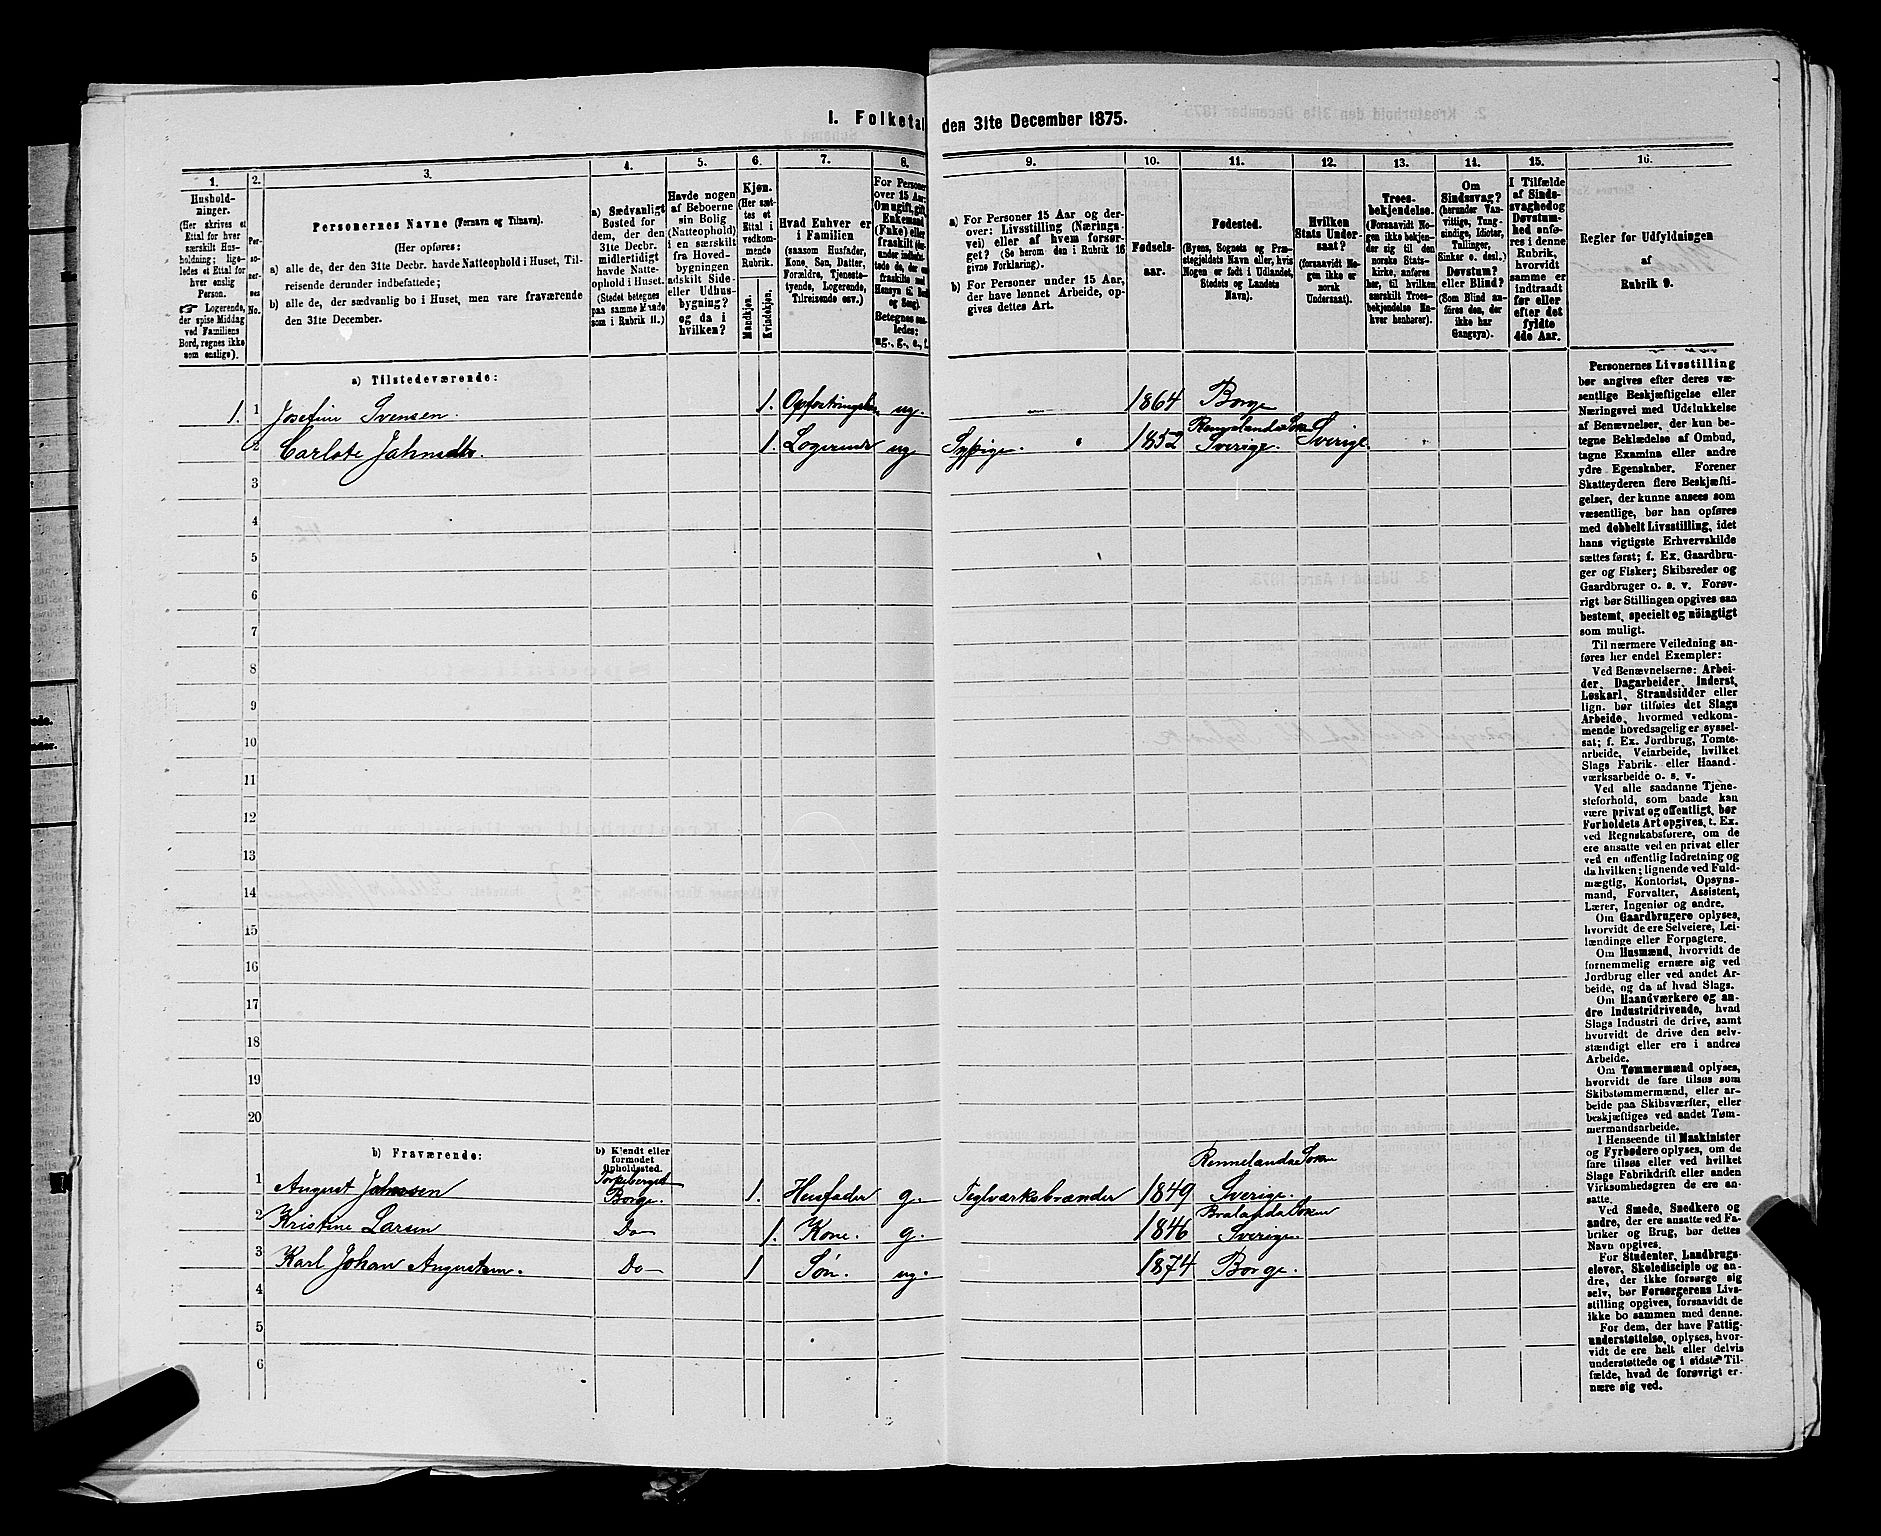 I. Folketal den 31te December 1875.
1.
Husholdninger.
(Her skrives et
Ettal for hver
særskilt Husholdning; ligeledes
et Ettal for
hver enslig
Person.
☞ Logerende,
der spise Middag
ved Familiens
Bord, regnes ikke
som enslige).
2.
Personernes
No.
3.
Personernes Navne (Fornavn og Tilnavn).
(Her opføres:
a) alle de, der den 31te Decbr. havde Natteophold i Huset, Tilreisende
derunder indbefattede;
b) alle de, der sædvanlig bo i Huset, men vare fraværende
den 31te December.
4.
a) Sædvanligt
Bosted for
dem, der den
31te Decbr.
midlertidigt
havde Natteophold
i Huset.
(Stedet betegnes
paa samme Maade
som i Rubrik 11.)
5.
Havde nogen
af Beboerne
sin Bolig
(Natteophold)
i en særskilt
fra Hovedbygningen
adskilt Side-
eller Udhusbygning?
og da i
hvilken?
6.
Kjøn.
(Her sættes
et
Ettal i
vedkommende
Rubrik.
Mandkjøn.
Kvindekjøn.
7.
Hvad Enhver er
i Familien
(saasom Husfader,
Kone, Søn, Datter,
Forældre, Tjenestetyende,
Logerende,
Tilreisende osv.)
8.
For Personer
over 15 Aar:
Om ugift, gift,
Enkemand
(Enke) eller
fraskilt
Betegnes saaledes:
ug., g., e., f.
9.
a) For Personer 15 Aar og derover:
Livsstilling (Næringsvei)
eller af hvem forsørget?
(Se herom den i Rubrik 16
givne Forklaring).
b) For Personer under 15 Aar,
der have lønnet Arbeide, opgives
dettes Art.
10.
Fødselsaar.
11.
Fødested.
(Byens, Sognets og Præstegjeldets
Navn eller, hvis
Nogen er født i Udlandet,
Stedets og Landets
Navn).
12.
Hvilken
Stats Undersaat?
(forsaavidt Nogen
ikke er
norsk
Undersaat).
13.
Troesbekjendelse.
(Forsaavidt Nogen
ikke bekjender
sig til den
norske Statskirke,
anføres
her, til hvilken
særskilt Troesbekjendelse
Enhver
henhører).
14.
Om
Sindssvag?
(herunder Vanvittige,
Tungsindige,
Idioter,
Tullinger,
Sinker o. desl.)
Døvstum?
eller Blind?
(Som Blind anføres
den, der
ikke har
Gangsyn).
15.
I Tilfælde
af Sindssvaghed
og
Døvstumhed
anføres
i denne
Rubrik,
hvorvidt
samme er
indtraadt
før eller
efter det
fyldte
4de Aar.
16.
Regler for Udfyldningen
af
Rubrik 9.
a) Tilstedeværende:
1. 1 Josefine Svensen. 1. ug. 1864 Borge
2 Carlote 1. Logerende ug 1852 Sverige. Sverige.
3
4
5
6
7
8
9
10
11
12
13
14
15
16
17
18
19
20
b) Fraværende:
b) Kjendt eller
formodet
Opholdssted.
1 August Johnssen Torpeberget Borge. 1. Husfader g. Teglværksbrænder 1849 Rennelanda Sokn Sverige.
2 Kristine Larsen Do 1. Kone. g. 1846 Bralanda Sokn Sverige.
3 Karl Johan Augustsen. Do 1 Søn. ug. 1874 Borge.
4
5
6
Personernes Livsstilling
bør angives efter deres væsentlige
Beskjæftigelse eller
Næringsvei med Udelukkelse
af Benævnelser, der kun betegne
Beklædelse af Ombud,
tagne Examina eller andre
ydre Egenskaber. Forener
Skatteyderen flere Beskjæftigelser,
der kunne ansees som
væsentlige, bør han opføres
med dobbelt Livsstilling, idet
hans vigtigste Erhvervskilde
sættes først; f. Ex. Gaardbruger
og Fisker; Skibsreder og
Gaardbruger o. s. v. Forøvrigt
bør Stillingen opgives saa
bestemt, specielt og nöiagtigt
som muligt.
Til nærmere Veiledning anføres
her endel Exempler:
Ved Benævnelserne: Arbeider,
Dagarbeider, Inderst,
Løskarl, Strandsidder eller
lign. bør tilføies det Slags
Arbeide, hvormed vedkommende
hovedsagelig er sysselsat;
f. Ex. Jordbrug, Tomtearbeide,
Veiarbeide, hvilket
Slags Fabrik- eller Haandværksarbeide
o. s. v.
Ved alle saadanne Tjenesteforhold,
som baade kan
være privat og offentligt, bør
Forholdets Art opgives, t. Ex.
ved Regnskabsførere, om de
ere ansatte ved en privat eller
ved en offentlig Indretning og
da hvilken; lignende ved Fuldmægtig,
Kontorist, Opsynsmand,
Forvalter, Assistent,
Lærer, Ingeniør og andre.
Om Gaardbrugere oplyses,
hvorvidt de ere Selveiere, Leilændinge
eller Forpagtere.
Om Husmænd, hvorvidt de
fornemmelig ernære sig ved
Jordbrug eller ved andet Arbeide,
og da af hvad Slags.
Om Haandværkere og andre
Industridrivende, hvad
Slags Industri de drive, samt
hvorvidt de drive den selvstændigt
eller ere i andres
Arbeide.
Om Tømmermænd oplyses,
hvorvidt de fare tilsøs som
Skibstømmermænd, eller arbeide
paa Skibsværfter, eller
beskjæftiges ved andet Tømmermandsarbeide.
I Henseende til Maskinister
og Fyrbødere oplyses, om de
fare tilsøs eller ved hvilket
Slags Fabrikdrift eller anden
Virksomhedsgren de ere ansatte.
Ved Smede, Snedkere og
andre, der ere ansatte ved Fabriker
og Brug, bør dettes
Navn opgives.
For Studenter, Landbrugselever,
Skoledisciple og andre,
der ikke forsørge sig
selv, bør Forsørgerens Livsstilling
opgives, forsaavidt de
ikke bo sammen med denne.
For dem, der have Fattigunderstøttelse,
oplyses, hvorvidt
de ere helt eller delvis
understøttede og i sidste Tilfælde,
hvad de forøvrigt ernære
sig ved.